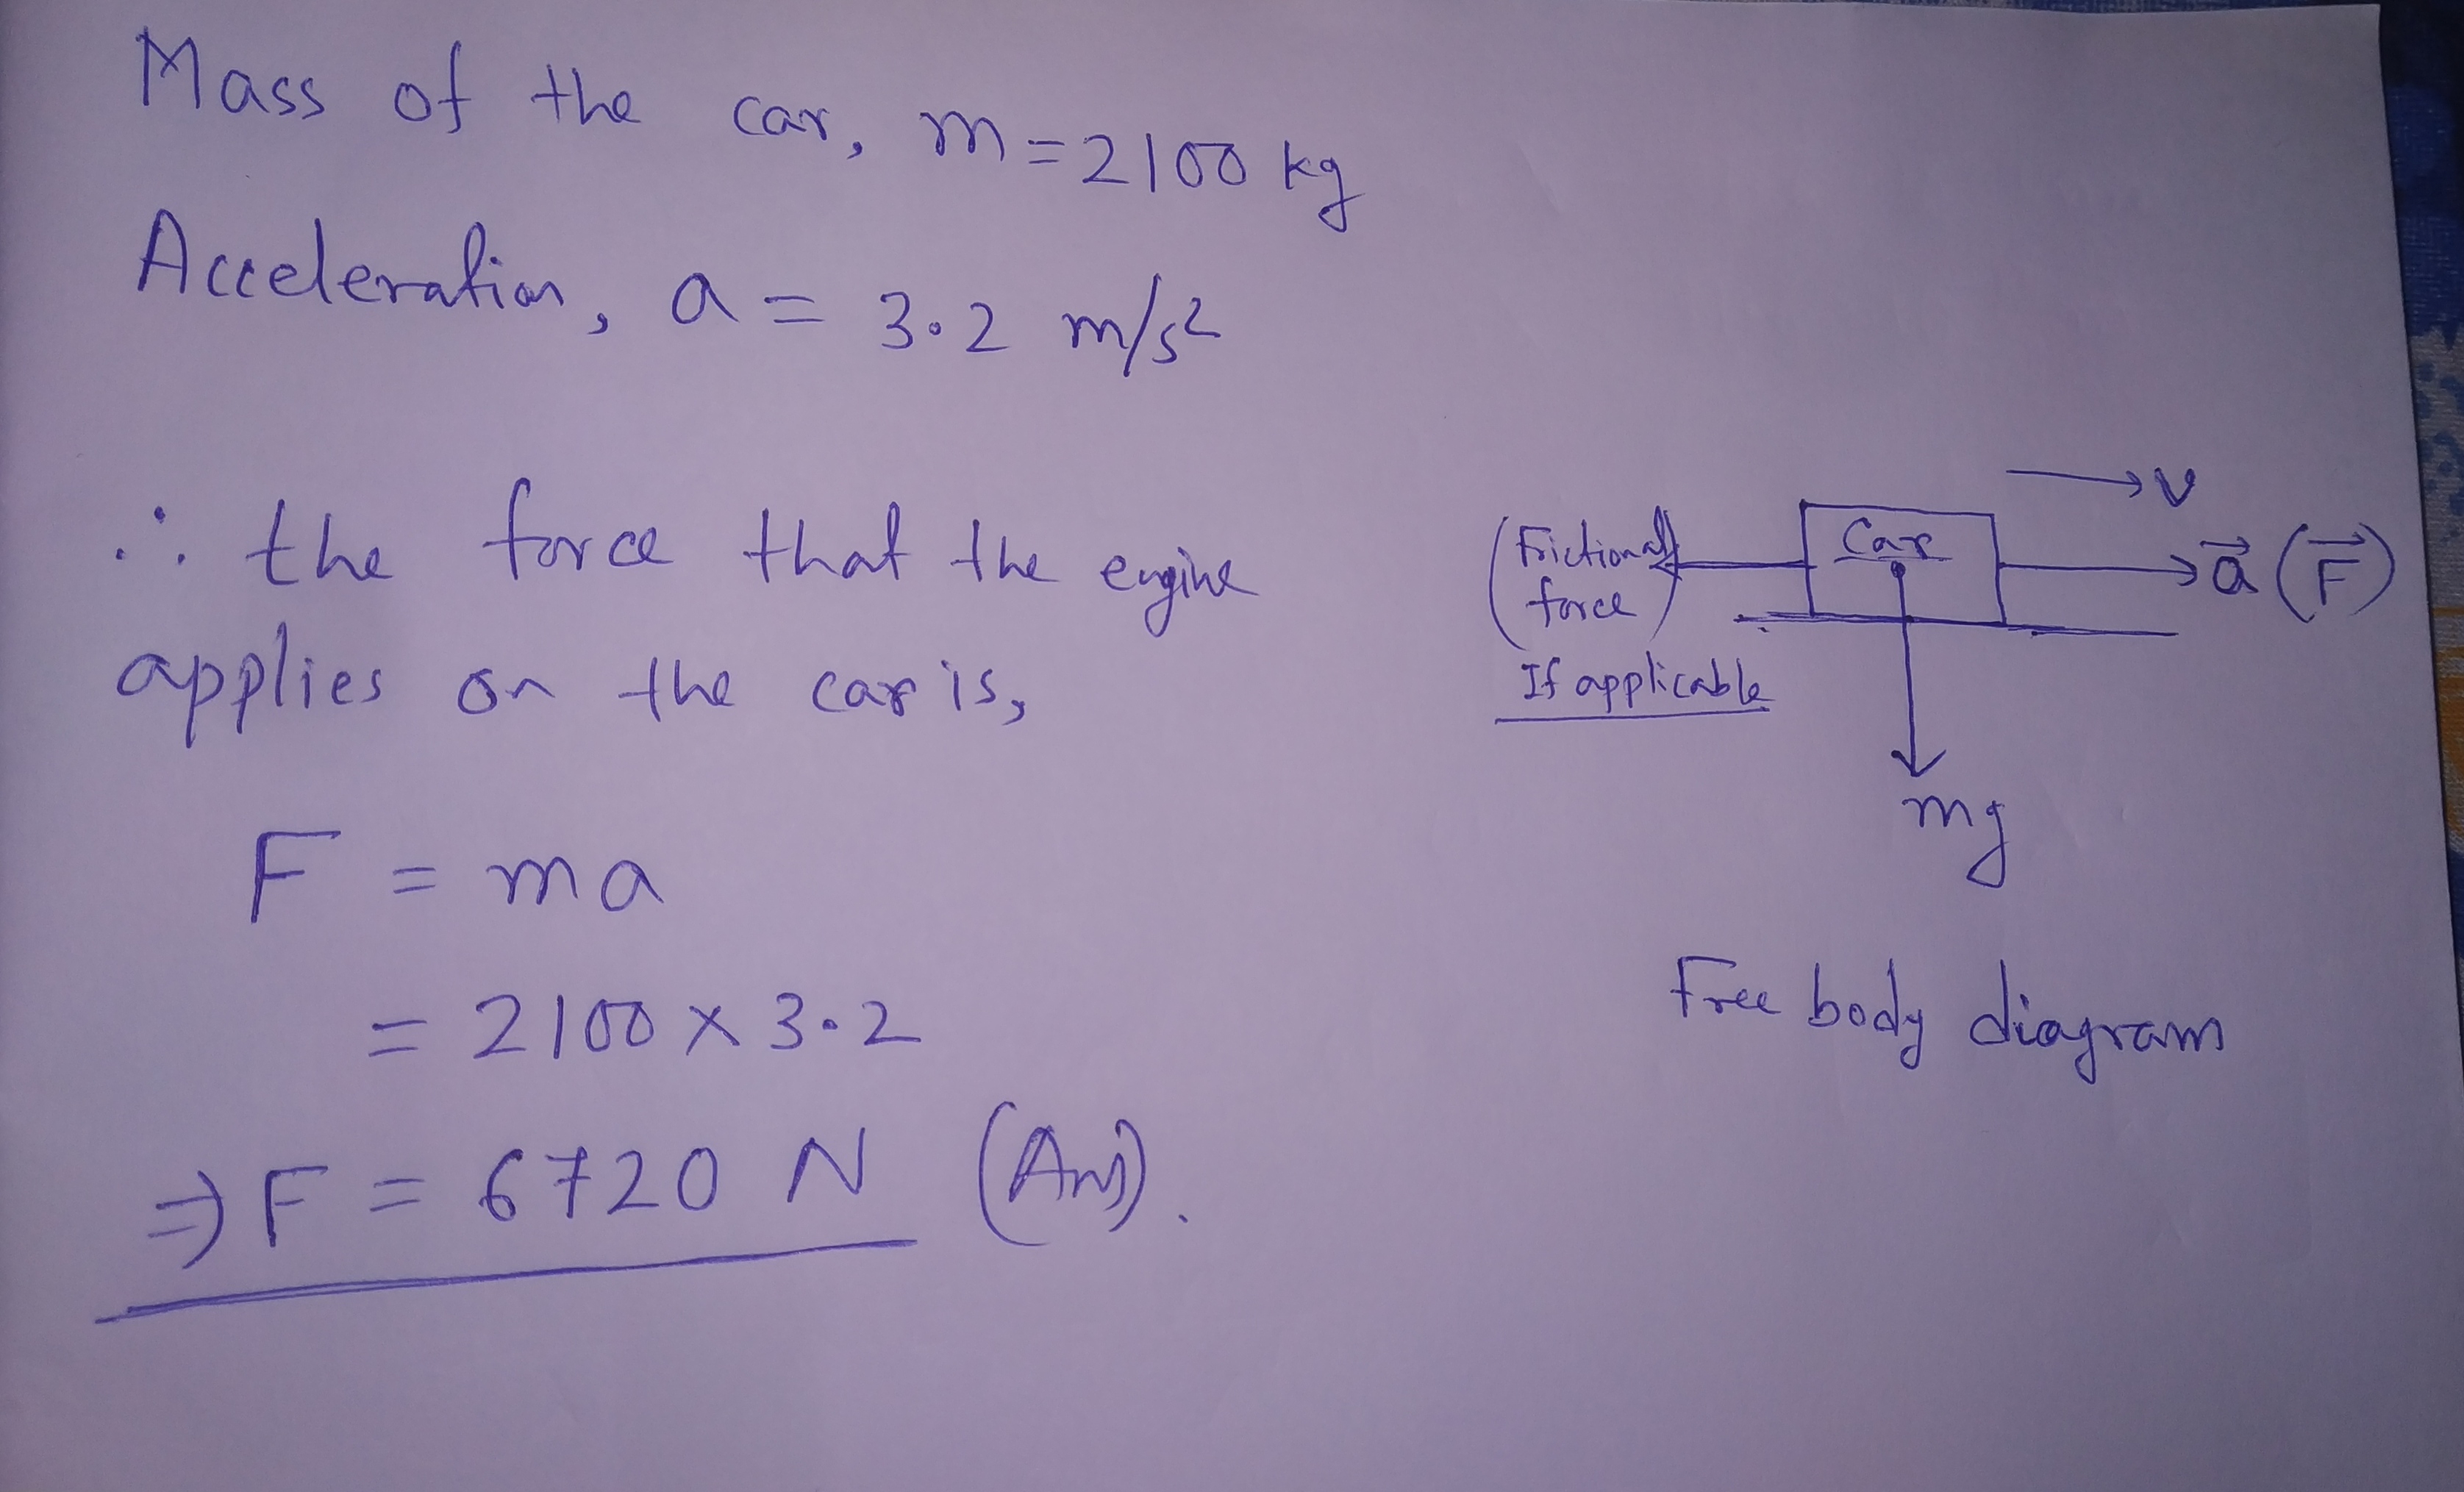 Mass of the car, m = 2100 kg
Acceleration, a = 3.2 m/s²
∴ the force that the engine
applies on the car is,
F = ma
= 2100 × 3.2
⇒ F = 6720 N (Ans).
v
Car
a⃗ (F⃗)
(Frictional
force)
If applicable
mg
Free body diagram